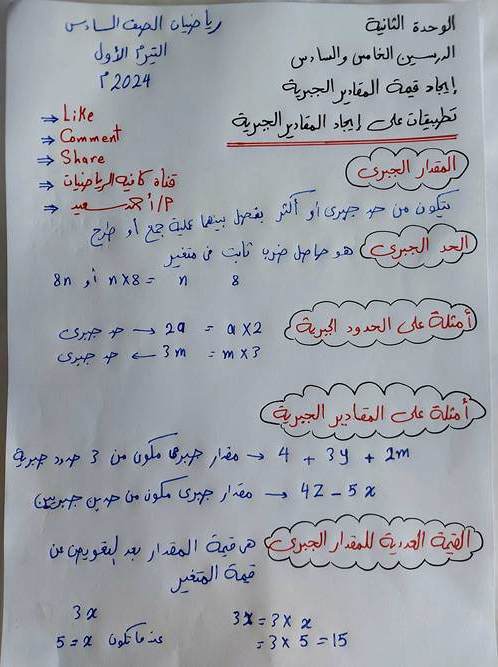 الوحدة الثانية
رياضيات الصف السادس
الدرسين الخامس والسادس
الترم الأول
إيجاد قيمة المقادير الجبرية
2024 م
تطبيقات على إيجاد المقادير الجبرية
⇒ Like
⇒ Comment
⇒ Share
⇒ قناة كافيه الرياضيات
⇒ P/ أحمد سعيد
المقدار الجبرى
يتكون من حد جبرى أو أكثر يفصل بينهما علية جمع أو طرح
الحد الجبرى هو حاصل ضرب ثابت فى متغير
8n أو n×8 = n 8
أمثلة على الحدود الجبرية
حد جبرى ← 2a = a×2
حد جبرى ← 3m = m×3
أمثلة على المقادير الجبرية
مقدار جبرى مكون من 3 حدود جبرية ← 4 + 3y + 2m
مقدار جبرى مكون من حدين جبريين ← 4Z - 5x
القيمة العددية للمقدار الجبرى هى قيمة المقدار بعد التعويض عن
قيمة المتغير
3x
3x = 3 × x
عندما تكون 5 = x
= 3 × 5 = 15